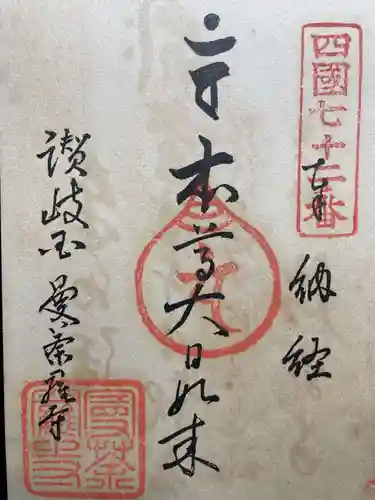 四國七十二番
奉納経
本尊大日如来
讃岐国曼荼羅寺